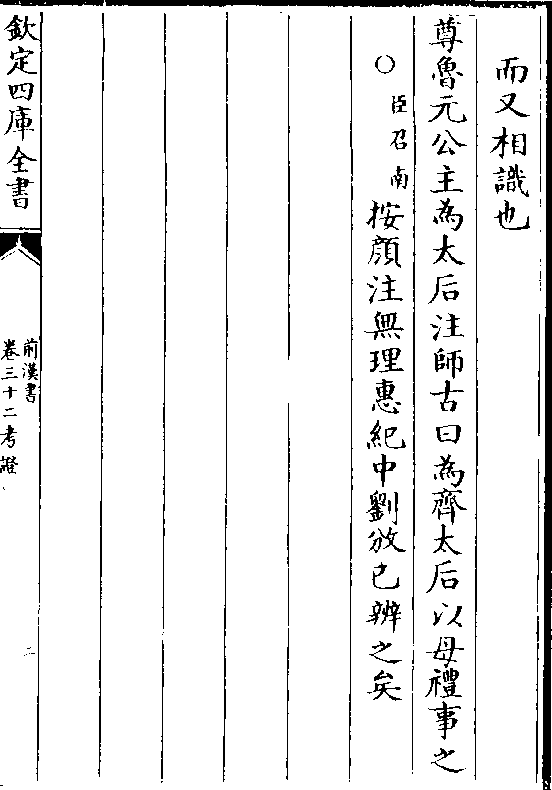 而又相識也
尊魯元公主為太后注師古曰為齊太后以母禮事之
○臣召南按顔注無理惠紀中劉攽已辨之矣
欽定四庫全書
前漢書
卷三十二考證
二